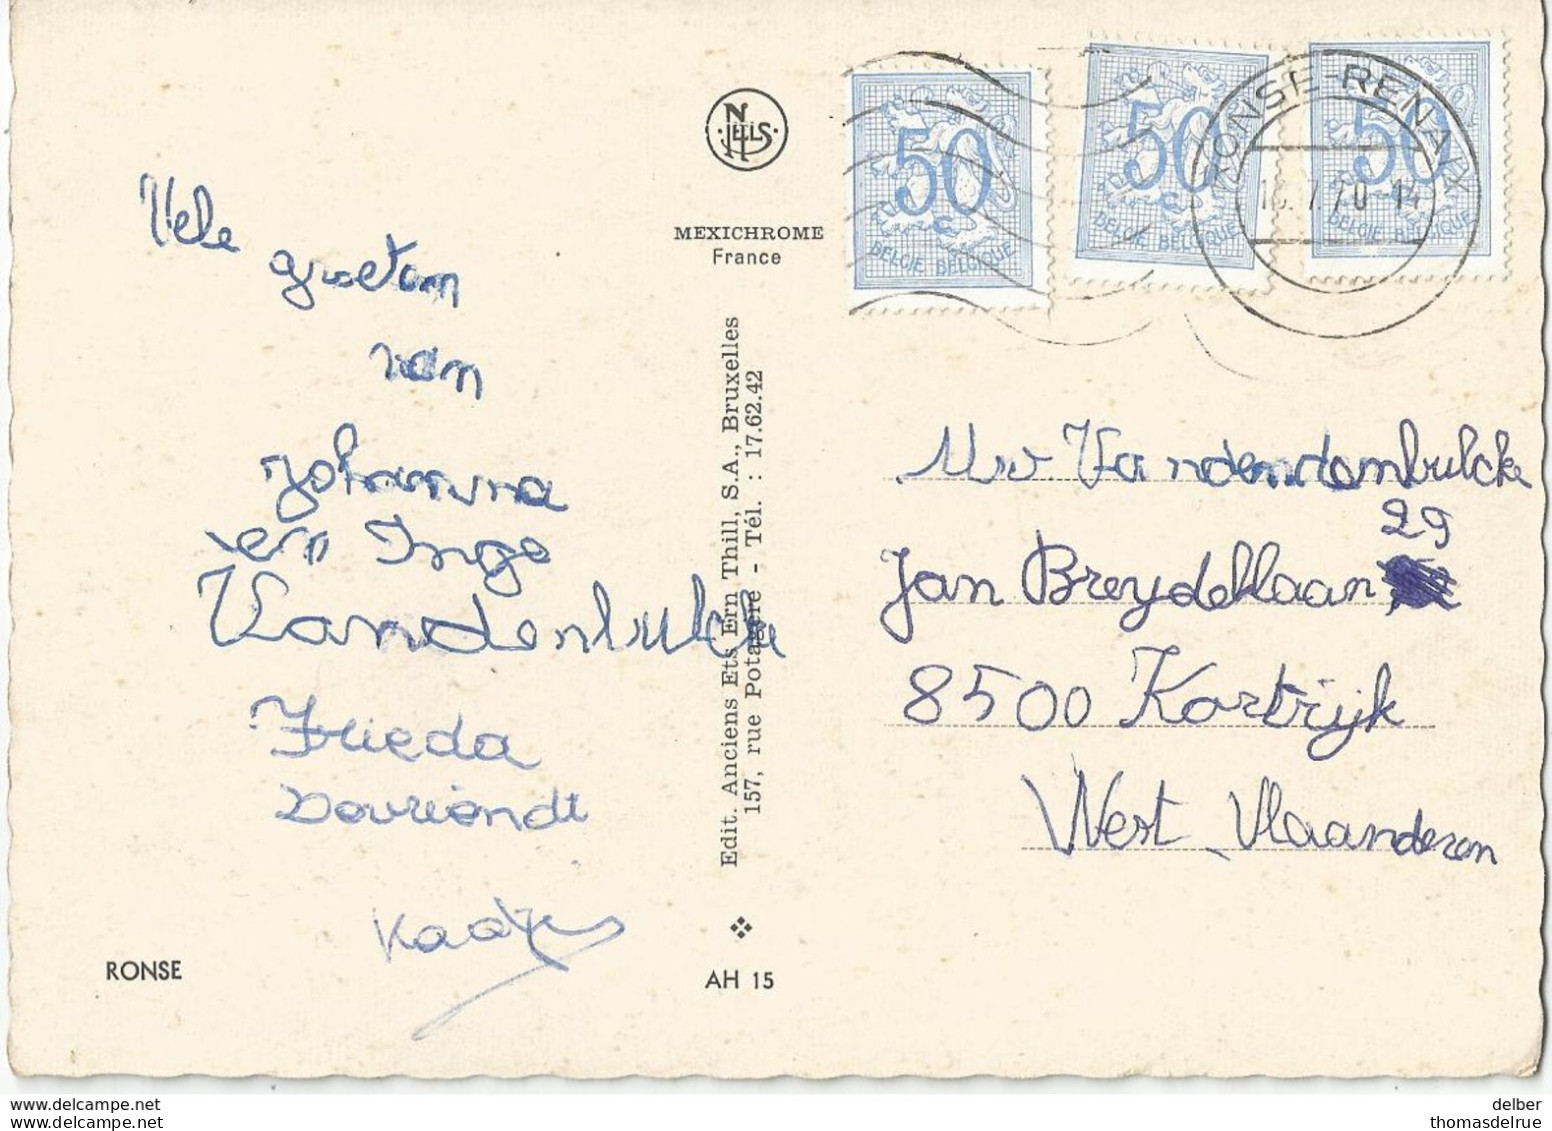 Vele
groeten
van
Johanna
en Inge
Vandenbulcke
Frieda
Devriendt
RONSE
NELS
MEXICHROME
France
Edit. Anciens Ets Ern Thill, S.A., Bruxelles
157, rue Potagère - Tél. : 17.62.42
AH 15
50 c
BELGIE BELGIQUE
50 c
BELGIE BELGIQUE
50
BELGIE BELGIQUE
RONSE-RENAIX
7.70-14
Mw Vandendenbulcke
29
Jan Breydellaan
8500 Kortrijk
West-Vlaanderen
www.delcampe.net
www.delcampe.net
delber
thomasdelrue